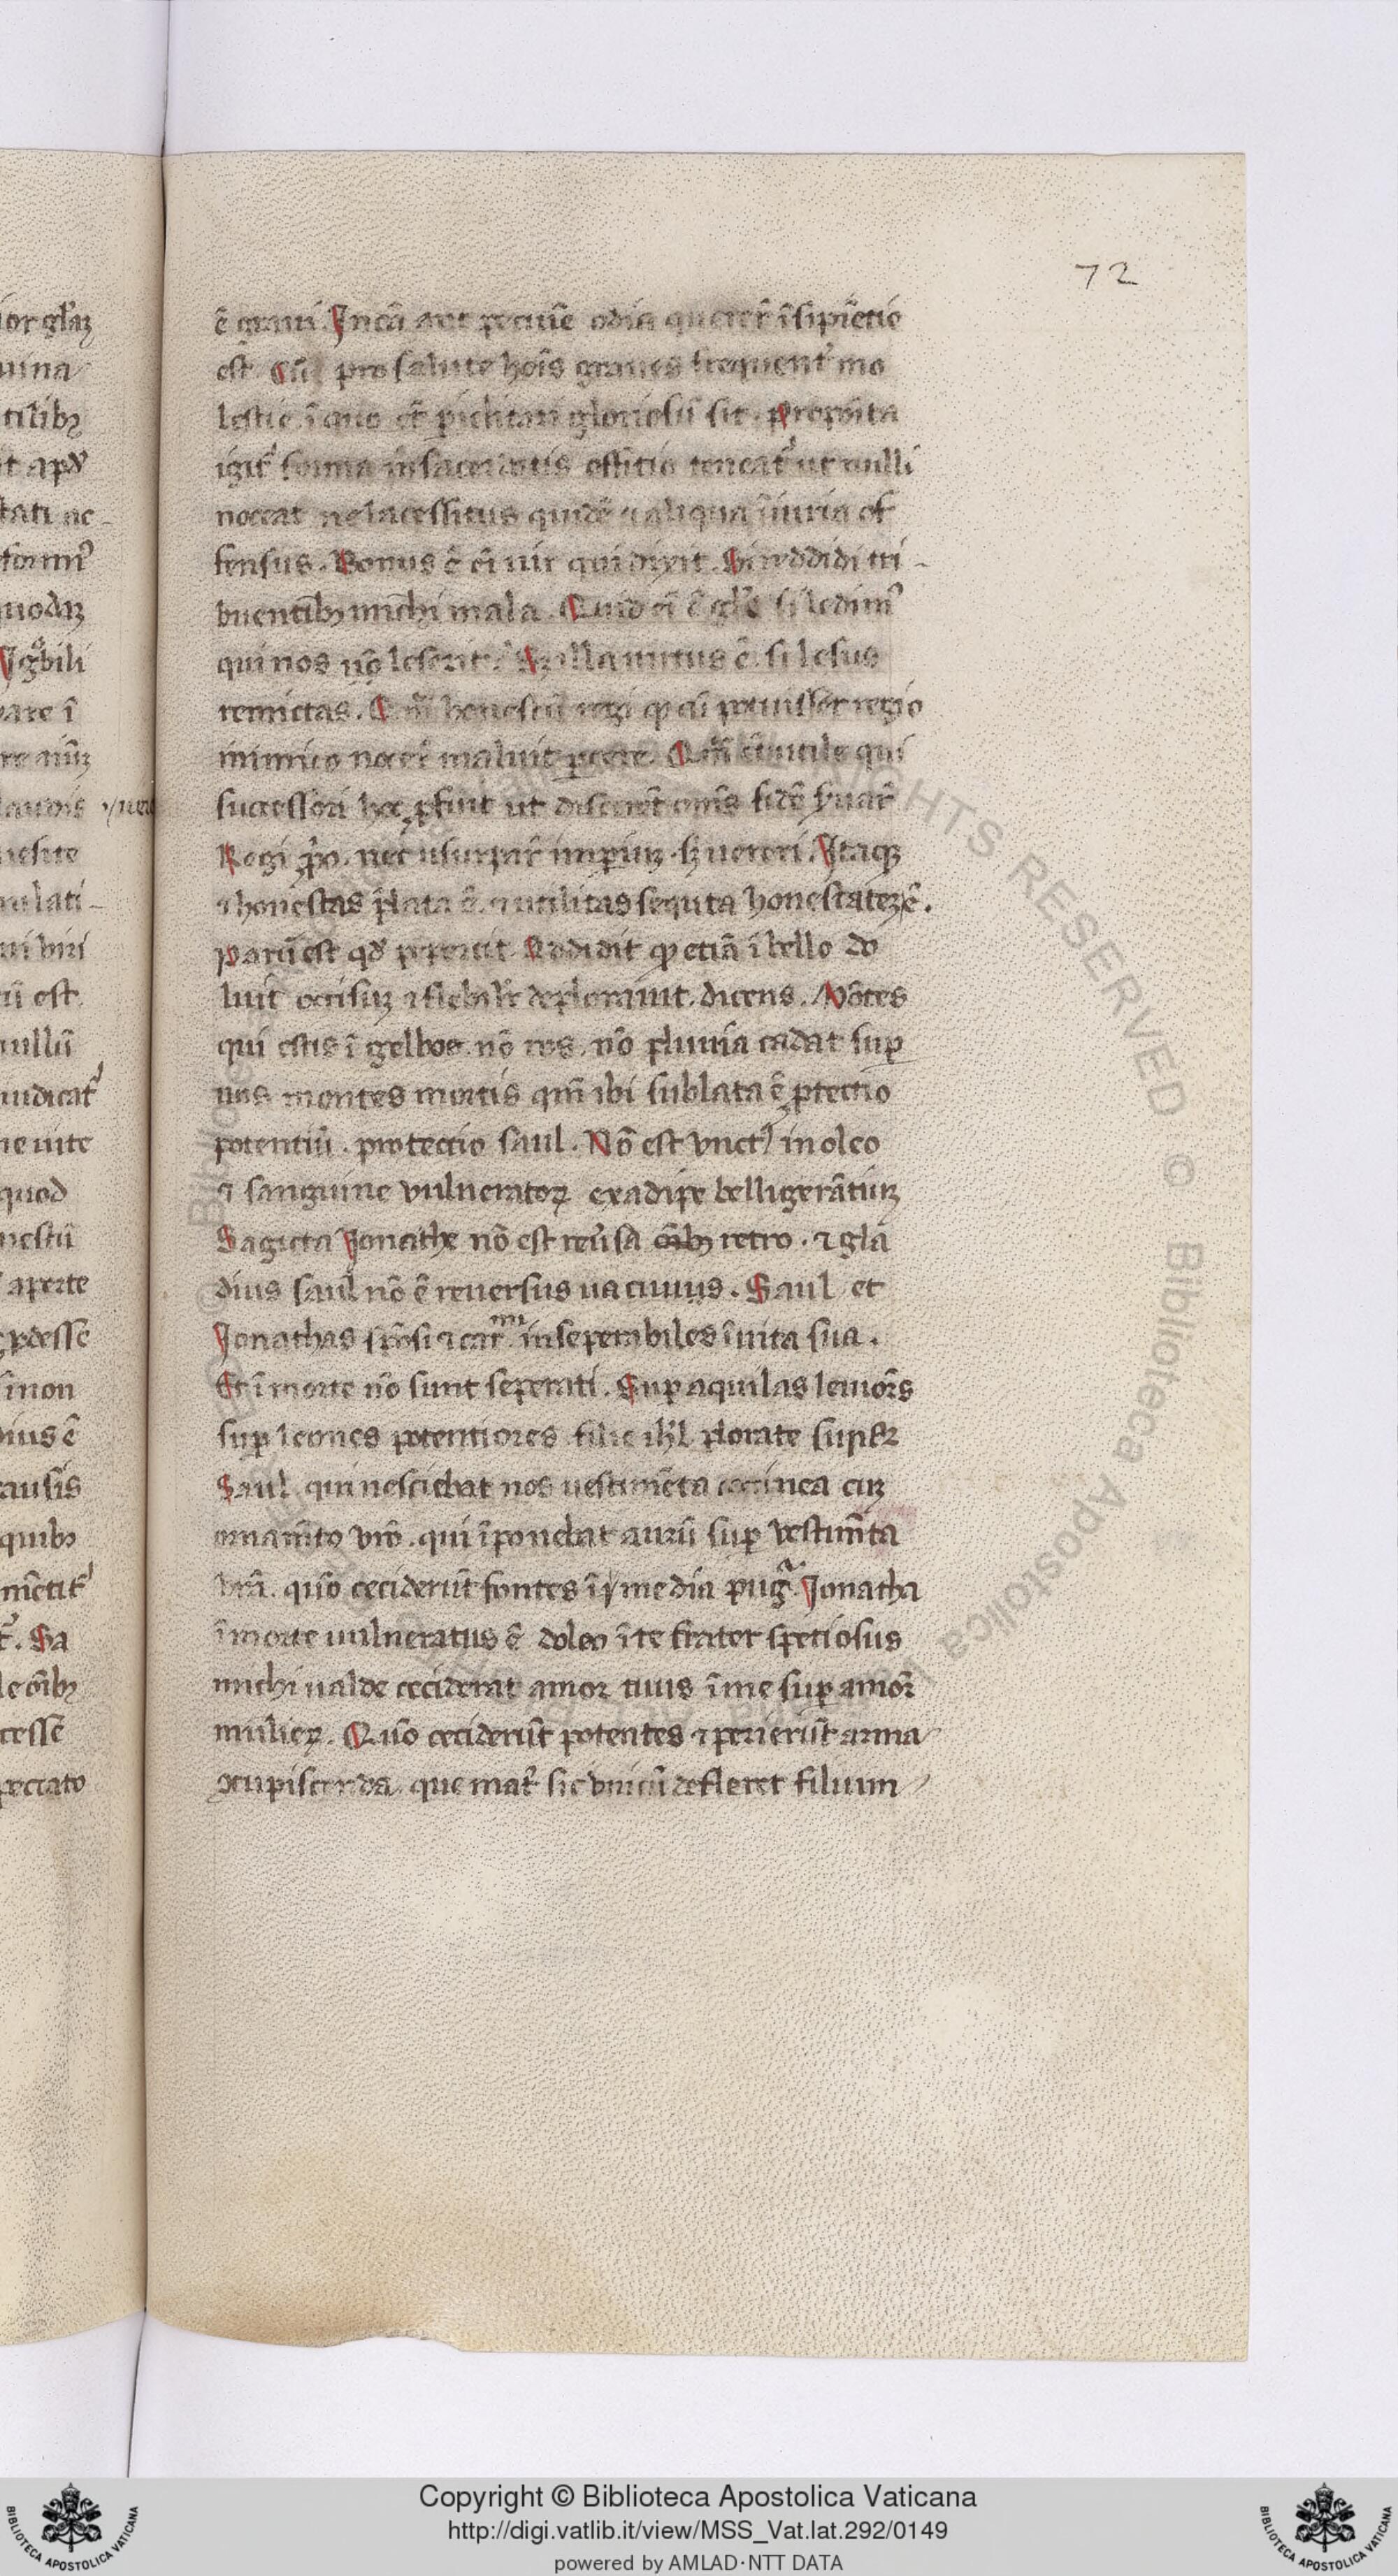 72
ē graui. In cā aut pecuīe odia querer̄ īsipiētie
est. Cū pro salute hoīs graues frequent᷑ mo
lestie. ī quo et̄ piclitari gloriosū sit. Proposita
igit᷑ forma in sacerdotis offitio teneat᷑ ut nulli
noceat ne lacessitus quidē ⁊ aliqua iniuria of
fensus. Bonus ē ei uir qui dixit. Si reddidi tri-
buentibꝫ michi mala. Quid ei ē gl̄e si ledimꝰ
qui nos nō leserit. Sꝫ illa uirtus ē. si lesus
remictas. Qm̄ honestū
inimico nocer̄ maluit parcere. Qm̄ ⁊ utile qui
successori hec ꝓfuit ut discerēt om̄s fidē suar̄
Regi ꝓo. nec usurpar̄ imperiuꝫ sꝫ uereri. Itaqꝫ
⁊ honestas p̄lata ē. ⁊ utilitas sequta honestateꝫ ē.
Parū est qđ pepercit. Addidit ꝙ etiā ī bello do
luit occisuꝫ ⁊ flebilr̄ deplorauit. dicens. Mōtes
qui estis ī gelboe. nō ros. nō pluuia cadat suꝑ
uos montes mortis qm̄ ibi sublata ē ꝓtectio
potentiū. protectio saul. Nō est vnctꝰ in oleo
⁊ sanguine vulneratoꝝ ex adipe belligerātiuꝫ
Sagicta Jonathe nō est reu̓sa oībꝫ retro. ⁊ gla
dius saul nō ē reuersus uacuuus. Saul et
Jonathas sp̄osi ⁊ carᵐⁱ inseperabiles ī uita sua.
Et ī morte nō sunt seperati. Suꝑ aquilas leuiores
suꝑ leones potentiores filie isr̄l plorate super
Saul qui nesciebat nos uestimēta coccinea cuꝫ
ornam̄to vr̄o. qui īponebat aurū suꝑ vestim̄ta
vr̄a. quō ceciderūt fontes ī media pugᵃ. Jonatha
ī morte uulneratus ē doleo ī te frater spetiosus
michi ualde ceciderat amor tuus ī me suꝑ amor̄
mulieꝝ. Quō ceciderūt potentes ⁊ perierūt arma
ꝯcupiscenda. que mat᷑ sic vnicū defleret filium
Copyright © Biblioteca Apostolica Vaticana
http://digi.vatlib.it/view/MSS_Vat.lat.292/0149
powered by AMLAD·NTT DATA